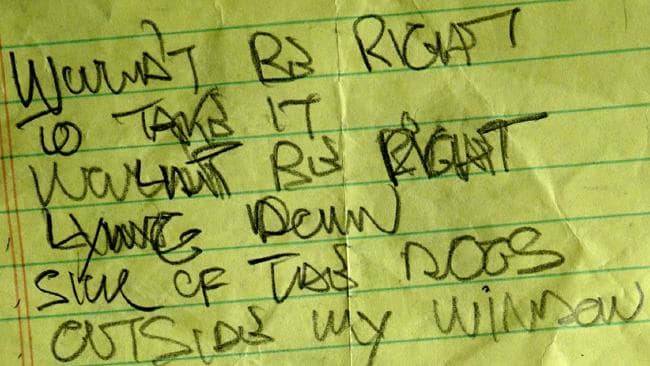 WOULDN'T BE RIGHT
TO TAKE IT
WOULDN'T BE RIGHT
LYING DOWN
SICK OF THE DOGS
OUTSIDE MY WINDOW